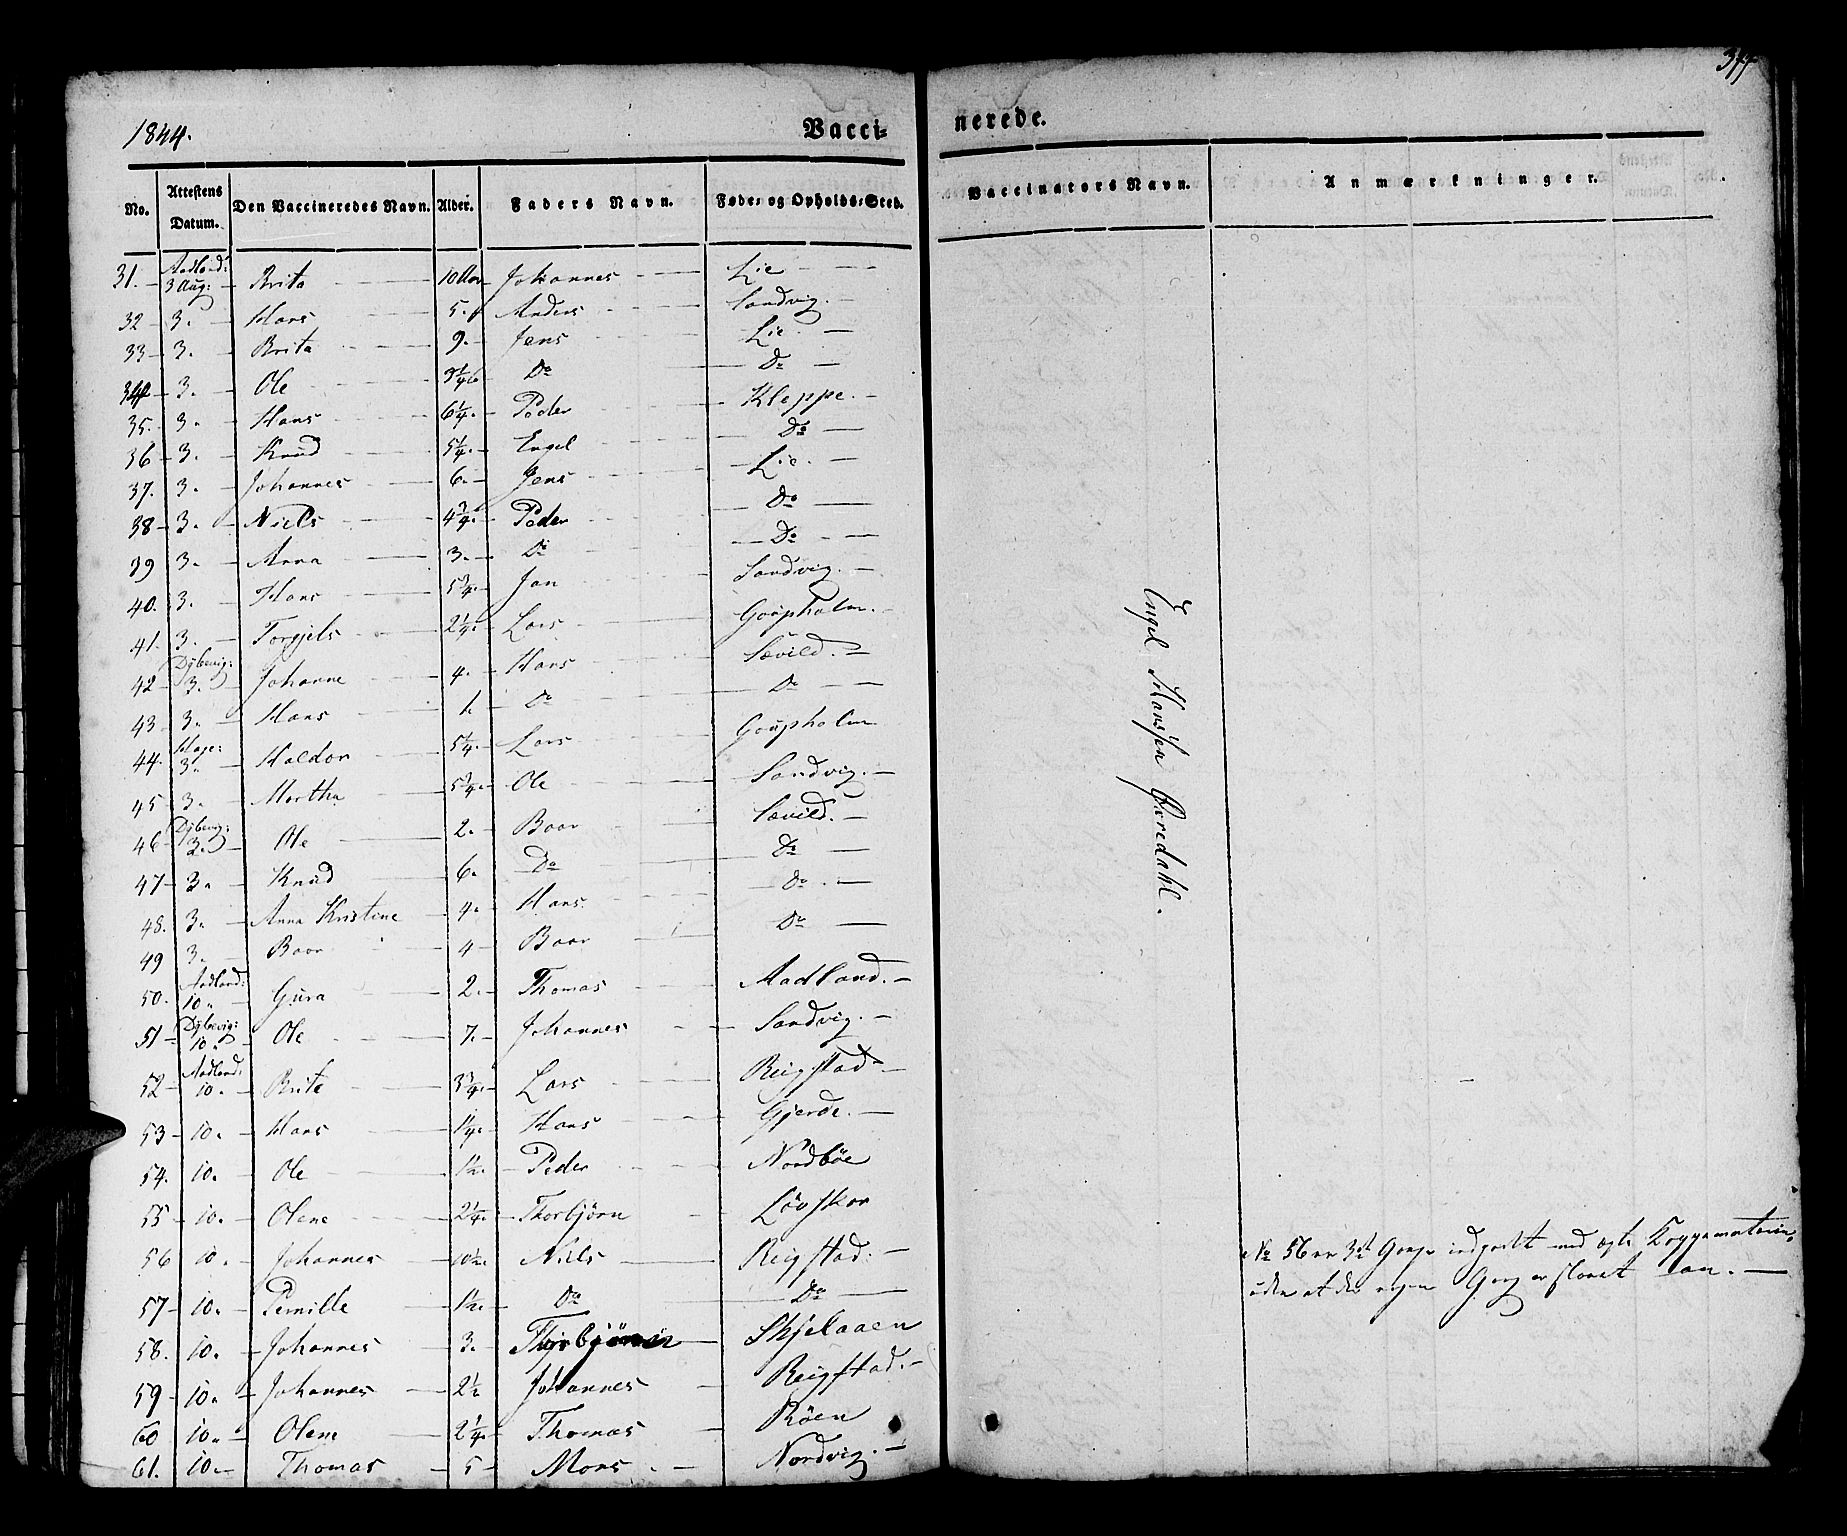 1844.
Vacci-
nerede.
No. Attestens Datum. Den Vaccineredes Navn. Alder. Faders Navn. Føde- og Opholds-Sted.
Vaccinators Navn. Anmærkninger.
31. Aadland: 3 Aug: Brita 10 Aar Johannes Lie
32 3. Hans 5. Anders Sandvig.
33 3. Brita 9. Jens Lie.
34 3. Ole Do Do
35. 3. Hans 6¼. Peder Kleppe.
36 3. Knud 5¼. Engel Do
37. 3. Johannes 6. Jens Lie.
38 3. Niels 4¾. Peder Do
39 3. Anna 3. Do Do
40. 3. Hans 5¾. Jan Sandvig.
41. 3. Torgjels 2¼. Lars Goupholm.
42 Dybevig: 3. Johanne 4. Hans Sævild.
43 3. Hans 1. Do Do
44. Hage: 3. Haldor 5¼. Lars Goupholm
45 3. Martha 5¾. Ole Sandvig.
46 Dybevig: 3. Ole 2. Baar Sævild.
47 3. Knud 6. Do Do
48. 3. Anna Kristine 4. Hans Do.
49 3. Baar 4 Baar Do
50. Aadland: 10. Gura 2. Thomas Aadland.
51 Dybevig: 10. Ole 7. Johannes Sandvig.
52 Aadland: 10. Brita 3¾. Lars Reigstad
53 10. Hans 1¼. Hans Gjerde.
54. 10. Ole 1½. Peder Nordbøe
55 10. Olene 2¼. Thorbjørn Løvskar
56 10. Johannes 10½. Niels Reigstad.
57 10. Pernille 1½. Do Do
58. 10. Johannes 3. Thorbjørn Skjelaaen
59 10. Johannes 2½ Johannes Reigstad.
60 10. Olene 2¼. Thomas Røen
61. 10. Thomas 5 Mons Nordvig.
Engel Hansen Øredahl.
No 56 er 3die Gang indpodet med ægte Koppematerie,
uden at den nogen Gang er slaaet an.